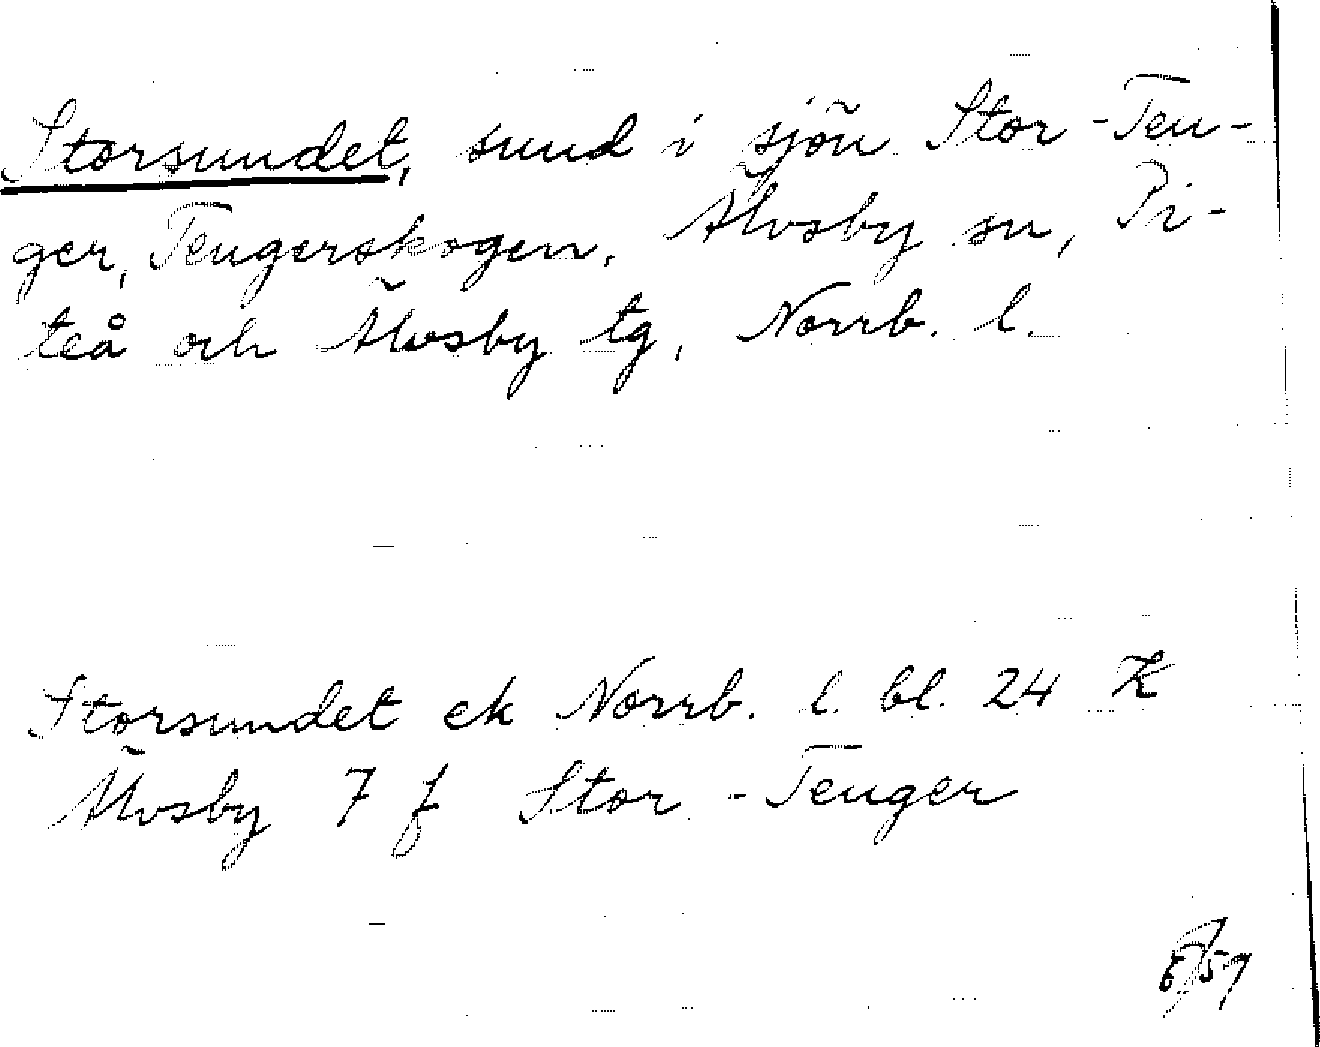 Storsundet, sund i sjön Stor-Ten-
ger, Tengerskogen. Älvsby sn, Pi-
teå och Älvsby tg, Norrb. l.
Storsundet ek Norrb. l. bl. 24
Älvsby 7 f Stor-Tenger